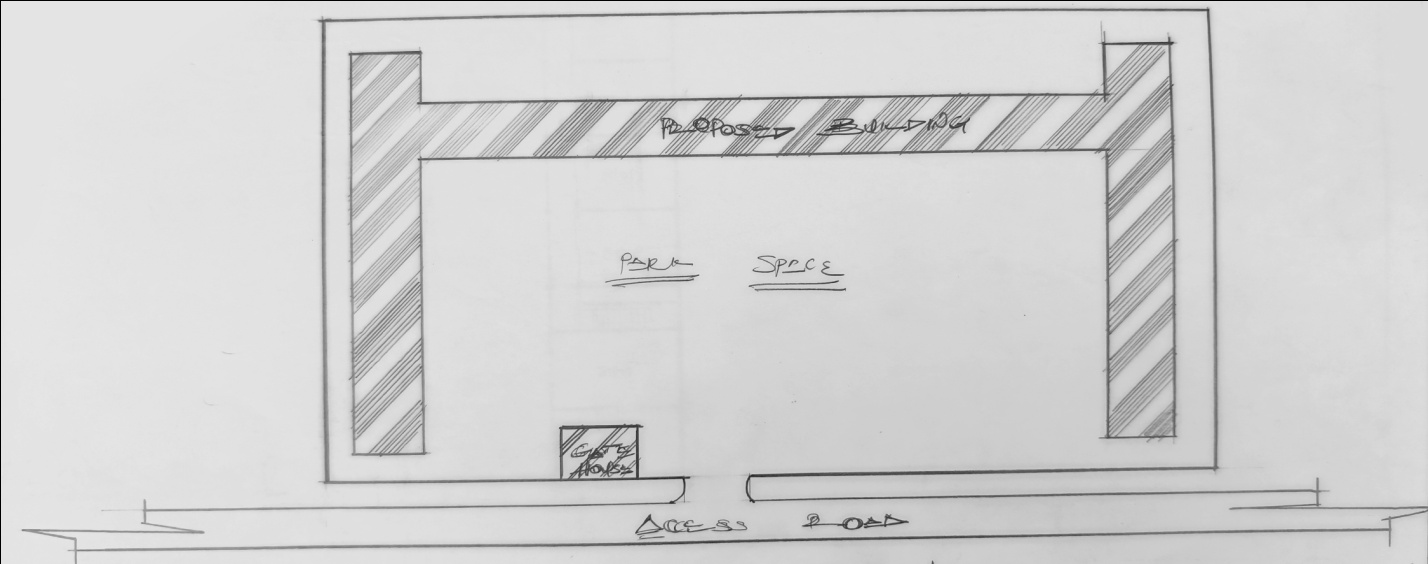 PROPOSED BUILDING
PARK SPACE
GATE
HOUSE
ACCESS ROAD